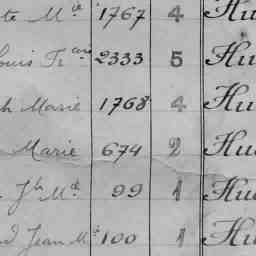 te Mie 1767 4 Hu
ouis Fcois 2333 5 Hu
h Marie 1768 4 Hu
Marie 674 2 Hu
Jh Md 99 1 Hu
d Jean Mie 100 1 Hu